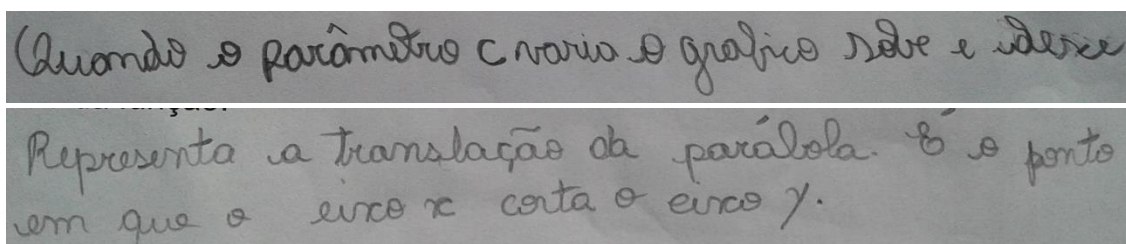 Quando o parâmetro c varia o grafico sobe e desce
Representa a translação da parábola. É o ponto
em que o eixo x corta o eixo y.